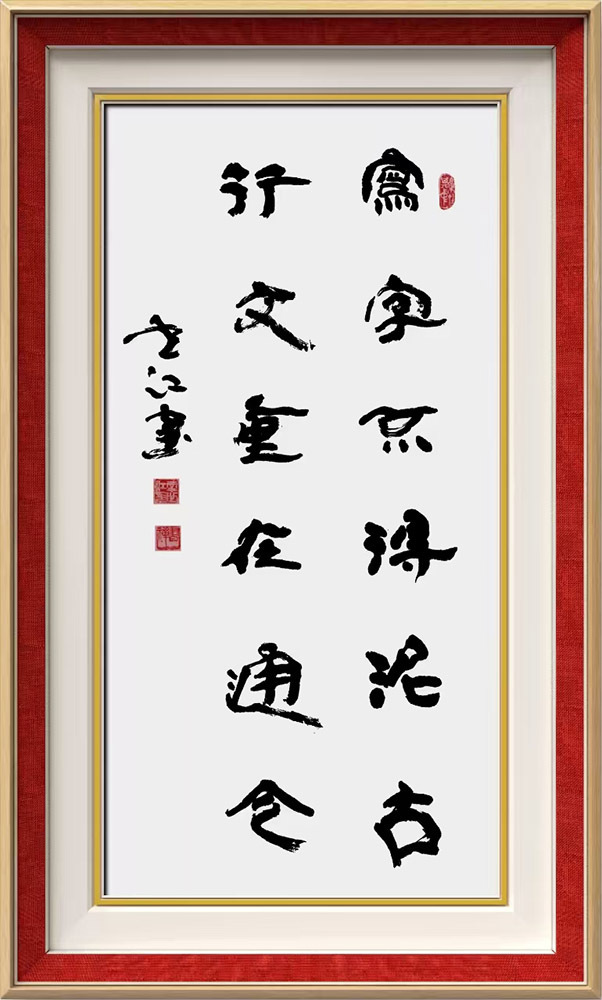 寫字不得泥古
行文重在通今
世江書